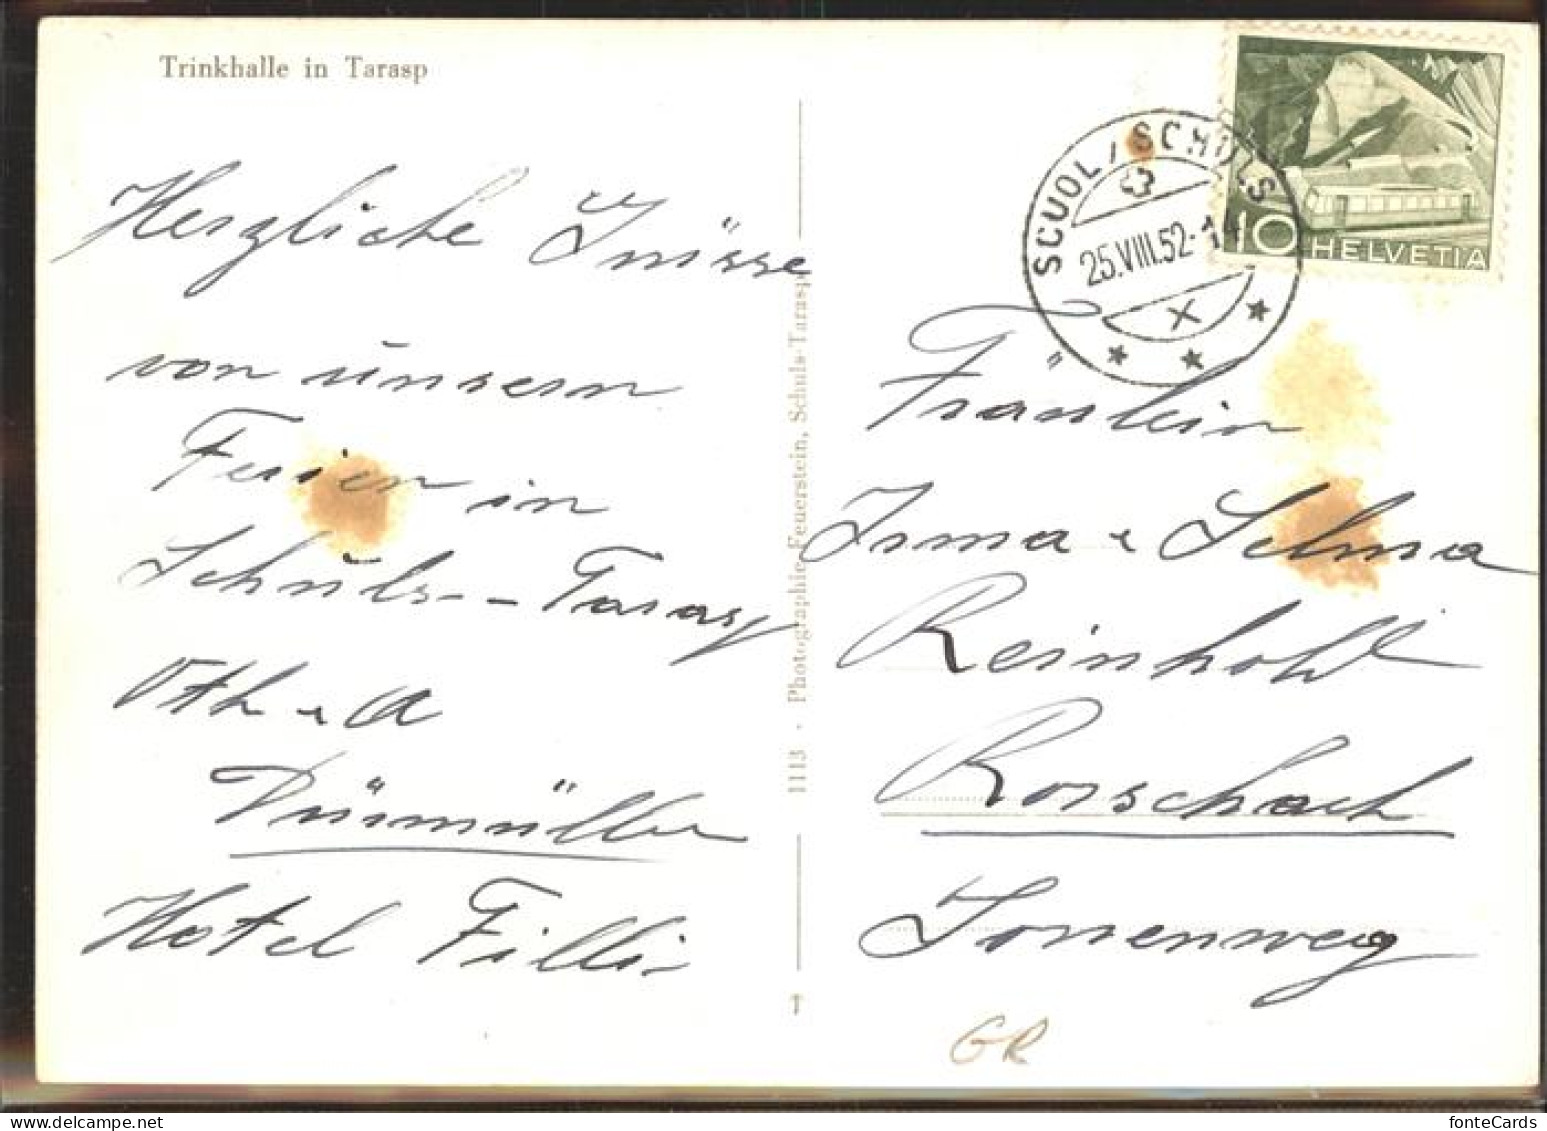 Trinkhalle in Tarasp
Herzliche Grüsse
von unsern
Ferien in
Schuls-Tarasp
Oth + A
Dürmüller
Hotel Filli
1113 · Photographie Feuerstein, Schuls-Tarasp
SCUOL / SCHULS
25.VIII.52
X
10 HELVETIA
Fräulein
Irma + Selma
Reinhold
Rorschach
Sonnenweg
GR
fonteCards